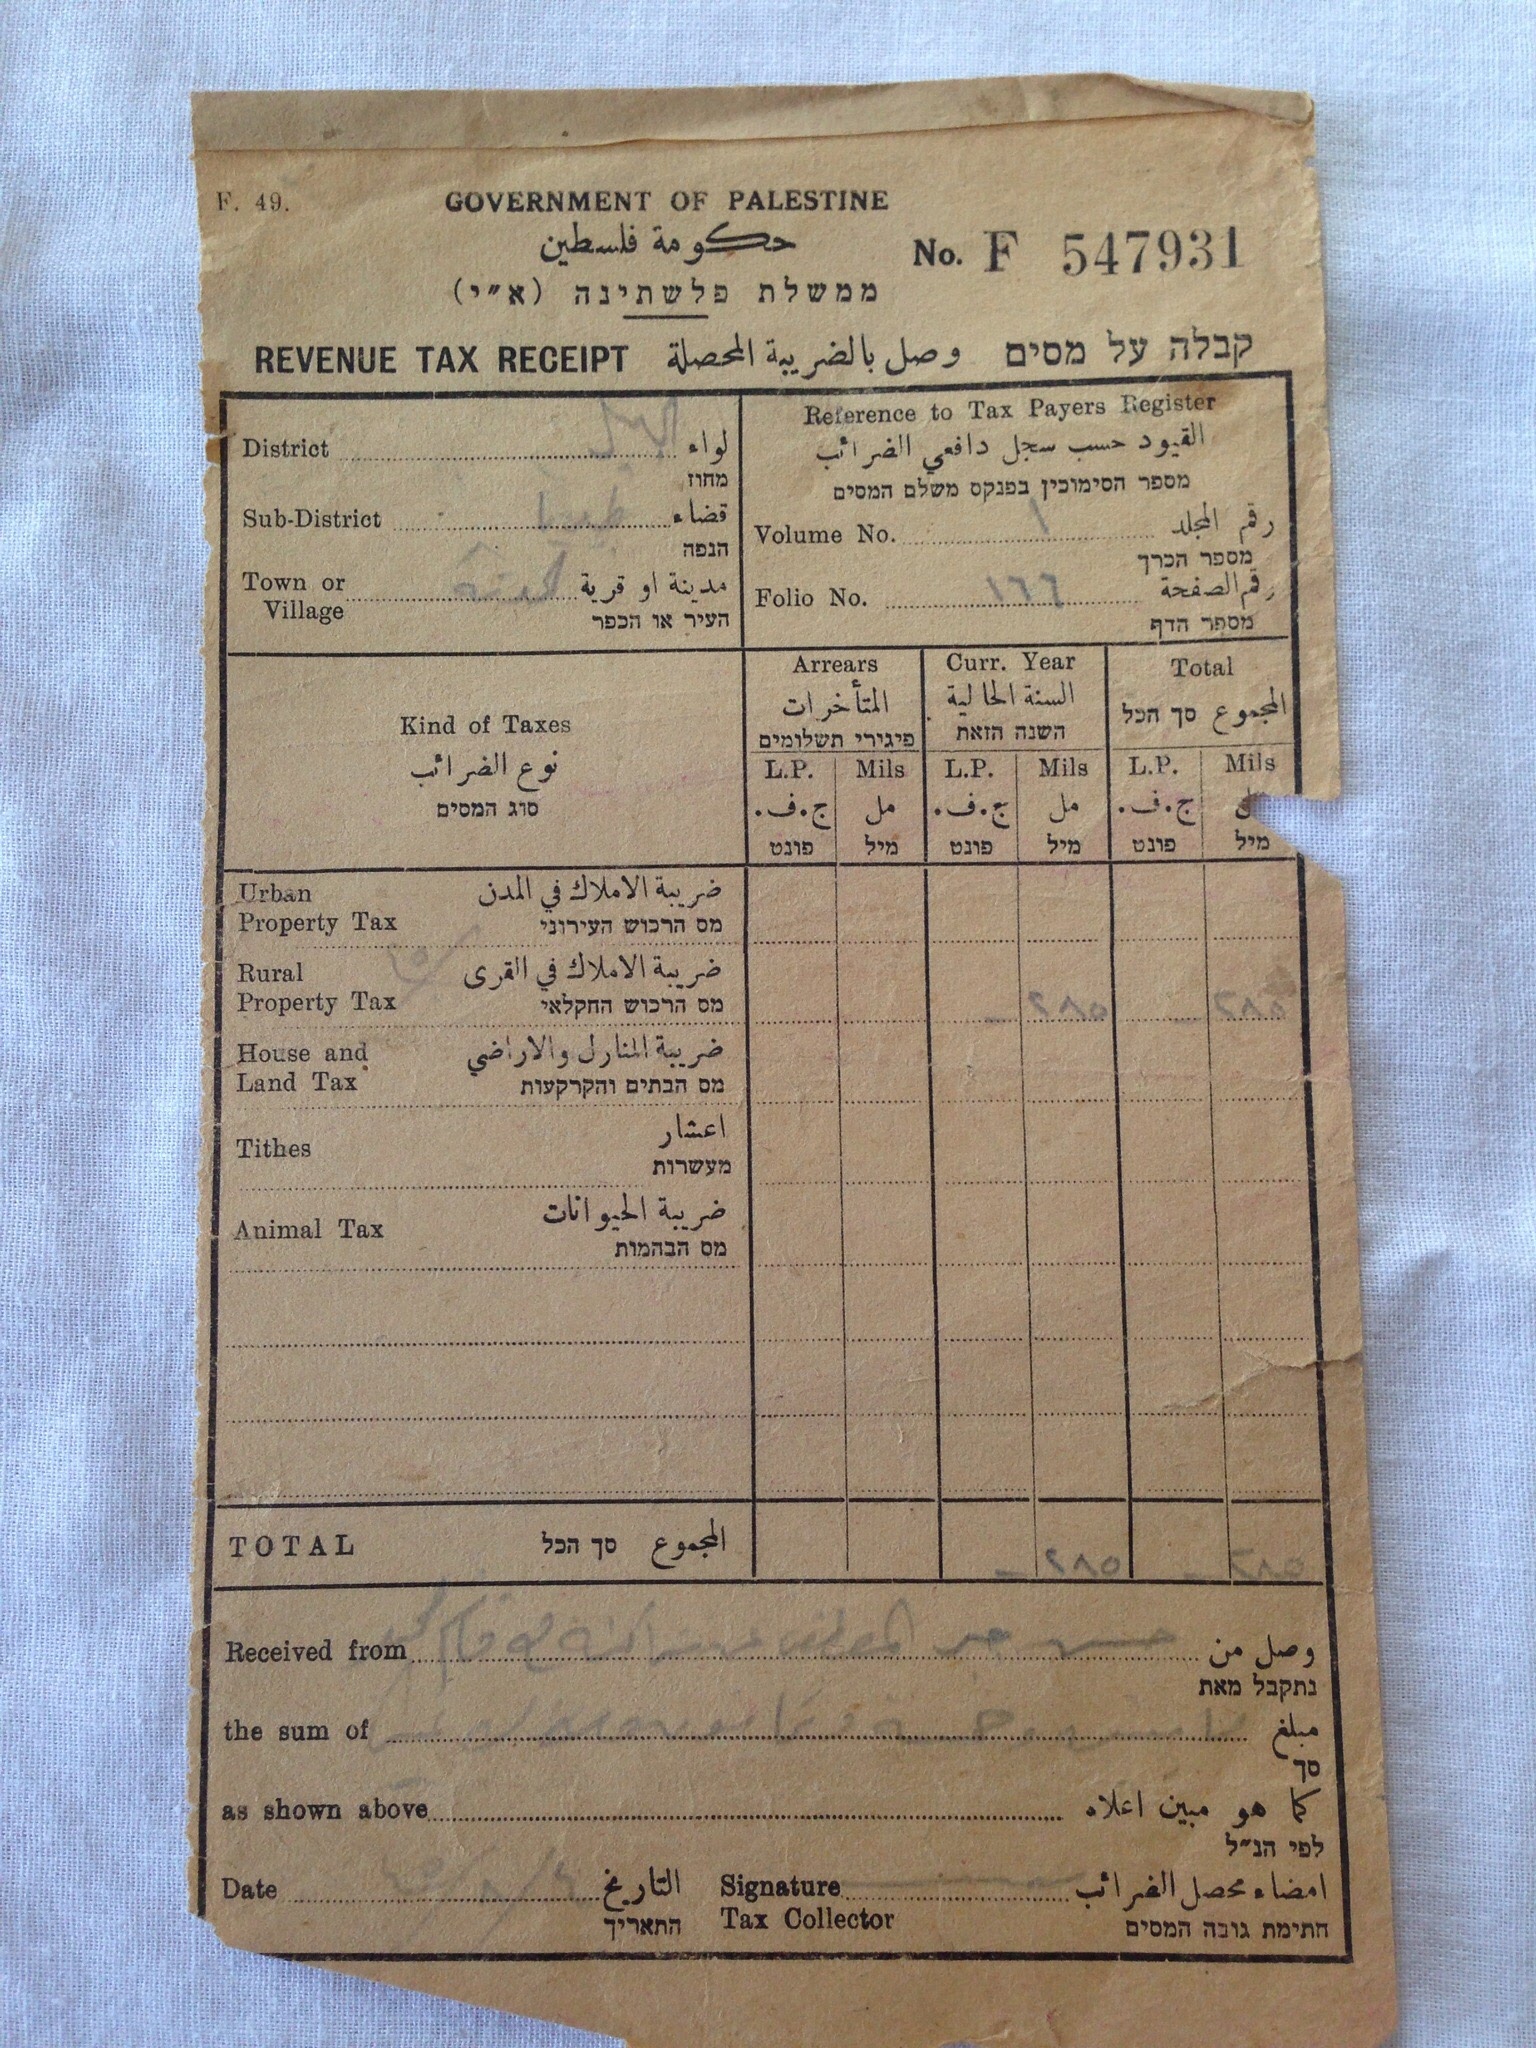 F. 49.
GOVERNMENT OF PALESTINE
حكومة فلسطين
No. F 547931
ממשלת פלשתינה (א״י)
REVENUE TAX RECEIPT وصل بالضريبة المحصلة קבלה על מסים
District لواء
מחוז
Sub-District قضاء
הנפה
Town or Village مدينة او قرية
העיר או הכפר
Reference to Tax Payers Register
القيود حسب سجل دافعي الضرائب
מספר הסימוכין בפנקס משלם המסים
Volume No. ١ رقم المجلد
מספר הכרך
Folio No. ١٦٦ رقم الصفحة
מספר הדף
Kind of Taxes
نوع الضرائب
סוג המסים
Arrears
المتأخرات
פיגורי תשלומים
Curr. Year
السنة الحالية
השנה הזאת
Total
المجموع סך הכל
L.P. Mils L.P. Mils L.P. Mils
ج.ف. مل ج.ف. مل ج.ف.
פונט מיל פונט מיל פונט מיל
Urban Property Tax ضريبة الاملاك في المدن
מס הרכוש העירוני
Rural Property Tax ضريبة الاملاك في القرى
מס הרכוש החקלאי
House and Land Tax ضريبة المنازل والاراضي
מס הבתים והקרקעות
Tithes اعشار
מעשרות
Animal Tax ضريبة الحيوانات
מס הבהמות
TOTAL סך הכל المجموع
Received from وصل من
נתקבל מאת
the sum of مبلغ
סך
as shown above كما هو مبين اعلاه
לפי הנ״ל
Date التاريخ
התאריך
Signature Tax Collector امضاء محصل الضرائب
חתימת גובה המסים